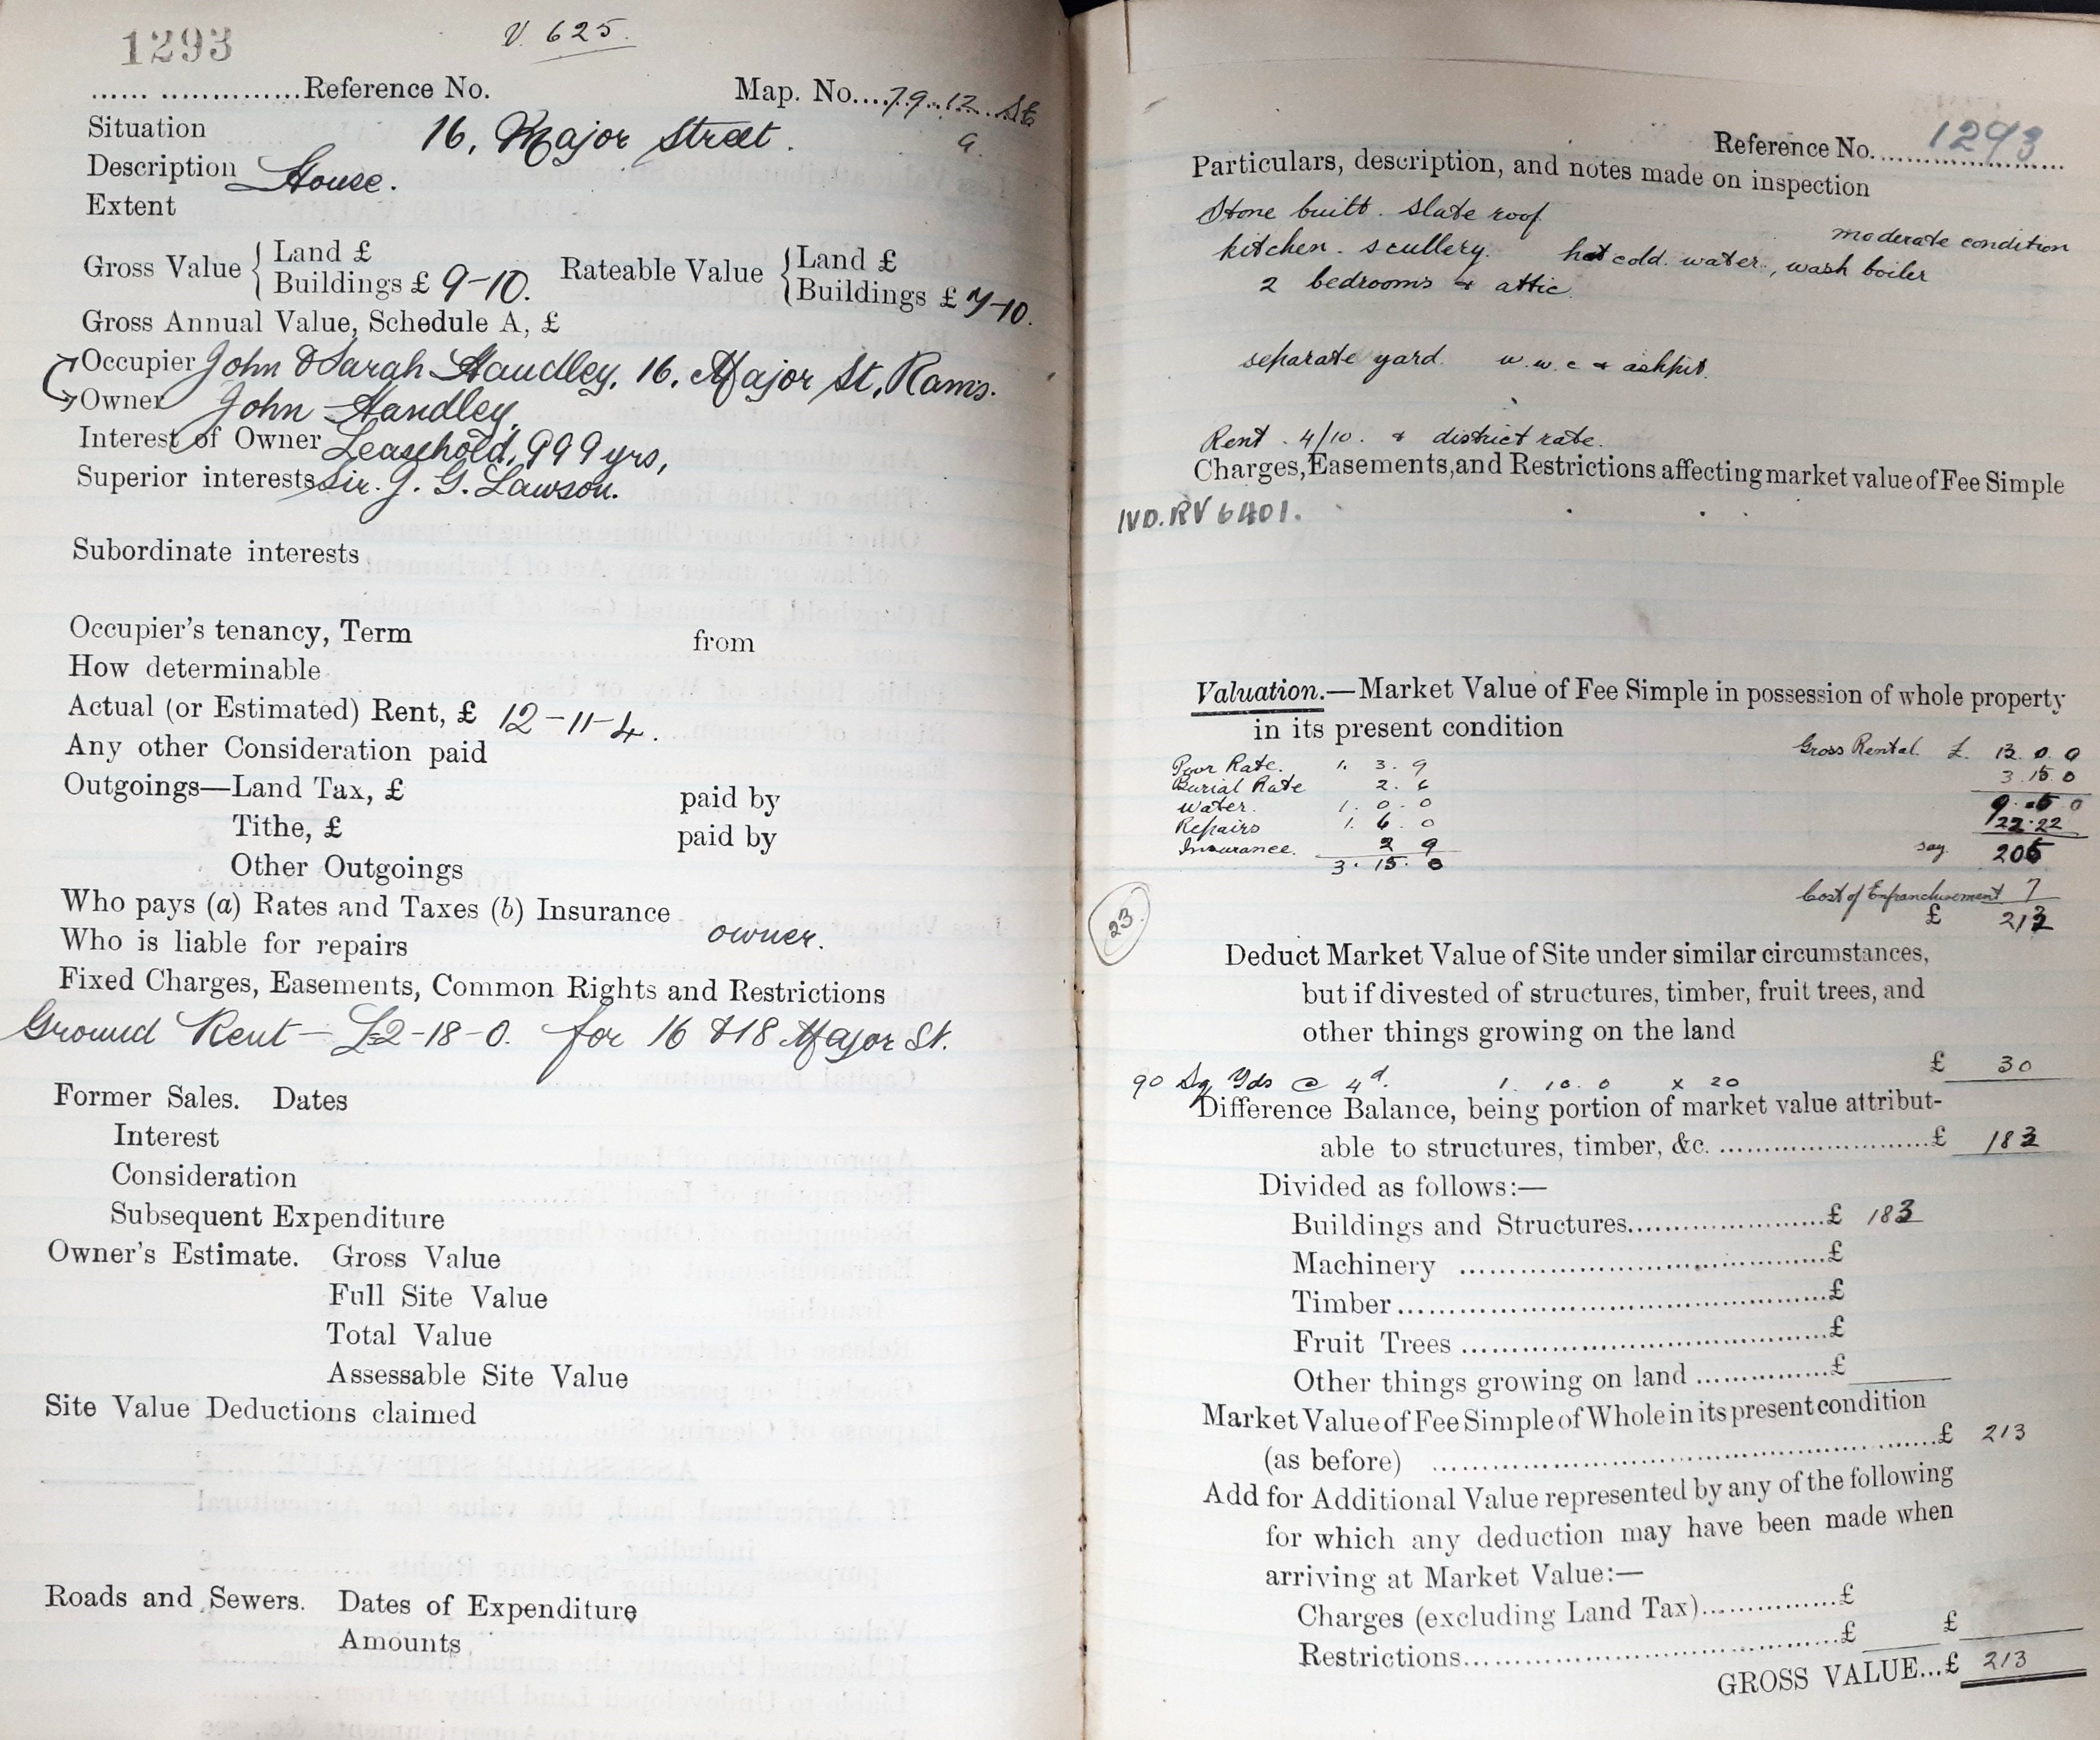 1293
V. 625.
...... ..............Reference No. Map. No....79..12..SE
a.
Situation 16, Major Street.
Description House.
Extent
Gross Value { Land £ Rateable Value { Land £
Buildings £ 9-10. Buildings £ 7-10.
Gross Annual Value, Schedule A, £
Occupier John & Sarah Handley, 16, Major St, Rams.
Owner John Handley,
Interest of Owner Leasehold, 999 yrs,
Superior interests Sir. J. G. Lawson.
Subordinate interests
Occupier's tenancy, Term from
How determinable
Actual (or Estimated) Rent, £ 12-11-4.
Any other Consideration paid
Outgoings—Land Tax, £ paid by
Tithe, £ paid by
Other Outgoings
Who pays (a) Rates and Taxes (b) Insurance
Who is liable for repairs owner.
Fixed Charges, Easements, Common Rights and Restrictions
Ground Rent — £2-18-0. for 16 & 18 Major St.
Former Sales. Dates
Interest
Consideration
Subsequent Expenditure
Owner's Estimate. Gross Value
Full Site Value
Total Value
Assessable Site Value
Site Value Deductions claimed
Roads and Sewers. Dates of Expenditure
Amounts
Reference No. 1293
Particulars, description, and notes made on inspection
Stone built. Slate roof.
moderate condition
kitchen. scullery. hot cold. water., wash boiler
2 bedrooms & attic.
separate yard. w.w.c & ashpit.
Rent. 4/10. & district rate.
Charges, Easements, and Restrictions affecting market value of Fee Simple
IVD. RV 6401.
Valuation.—Market Value of Fee Simple in possession of whole property
in its present condition
Gross Rental £. 13. 0. 0
Poor Rate. 1. 3. 9
3. 15. 0
Burial Rate 2. 6
Water. 1. 0. 0
9. 5 0
Repairs 1. 6. 0
22.22
Insurance. 2 9
say. 205
3. 15. 0
Cost of Enfranchisement 7
£ 213
23
Deduct Market Value of Site under similar circumstances,
but if divested of structures, timber, fruit trees, and
other things growing on the land
90 Sq Yds @ 4d. 1. 10. 0 x 20 £ 30
Difference Balance, being portion of market value attribut-
able to structures, timber, &c. .......................£ 183
Divided as follows:—
Buildings and Structures......................£ 183
Machinery .........................................£
Timber................................................£
Fruit Trees .........................................£
Other things growing on land ...............£
Market Value of Fee Simple of Whole in its present condition
(as before) .........................................................£ 213
Add for Additional Value represented by any of the following
for which any deduction may have been made when
arriving at Market Value:—
Charges (excluding Land Tax)...............£
Restrictions..........................................£ £
GROSS VALUE...£ 213